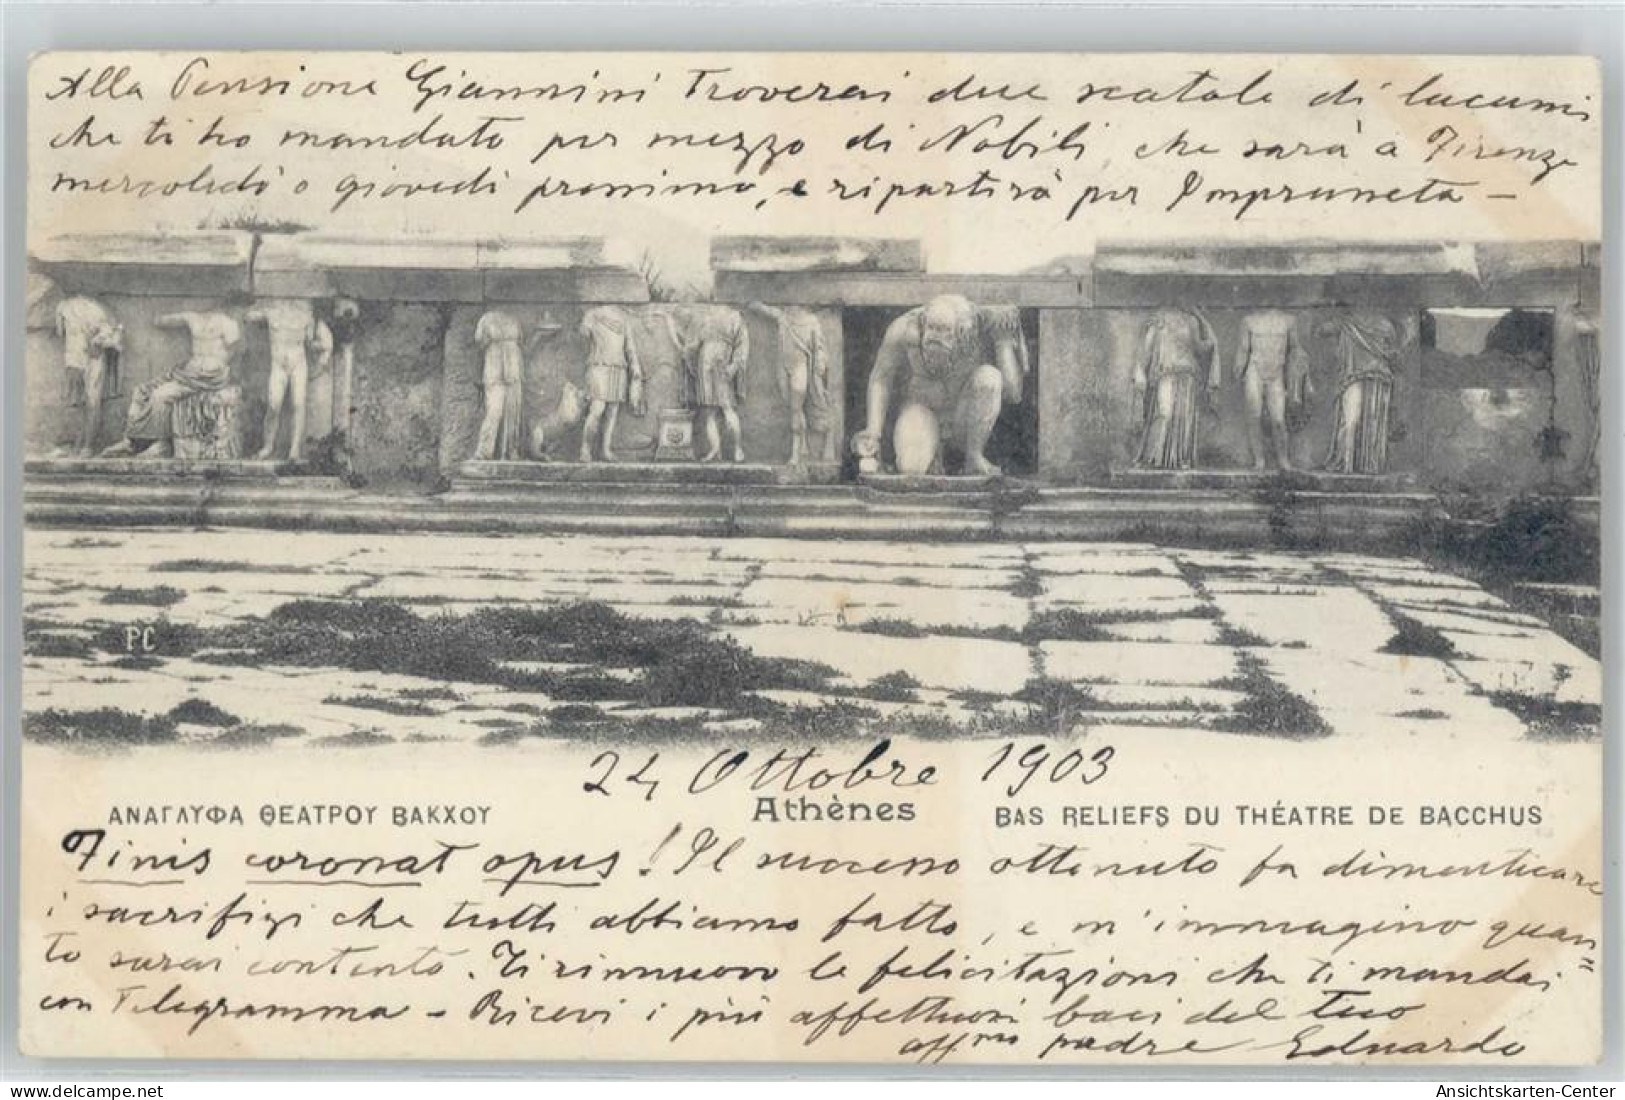 Alla Pensione Giannini troverai due scatole di lucumi
che ti ho mandato per mezzo di Nobili, che sarà a Firenze
mercoledì o giovedì prossimo, e ripartirà per Impruneta –
PC
24 Ottobre 1903
ΑΝΑΓΛΥΦΑ ΘΕΑΤΡΟΥ ΒΑΚΧΟΥ Athènes BAS RELIEFS DU THÉATRE DE BACCHUS
Finis coronat opus! Il successo ottenuto fa dimenticare
i sacrifizi che tutti abbiamo fatto, e m'immagino quan
to sarai contento. Ti rinnuovo le felicitazioni che ti mandai
con telegramma – Ricevi i più affettuosi baci del tuo
aff.mo padre Eduardo
Ansichtskarten-Center